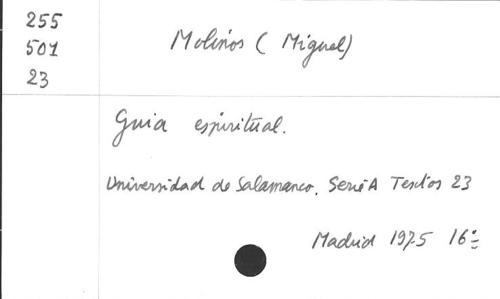 255
501
23
Molinos ( Miguel)
Guia espiritual.
Universidad de Salamanca. Serie A Textos 23
Madrid 1975 16º